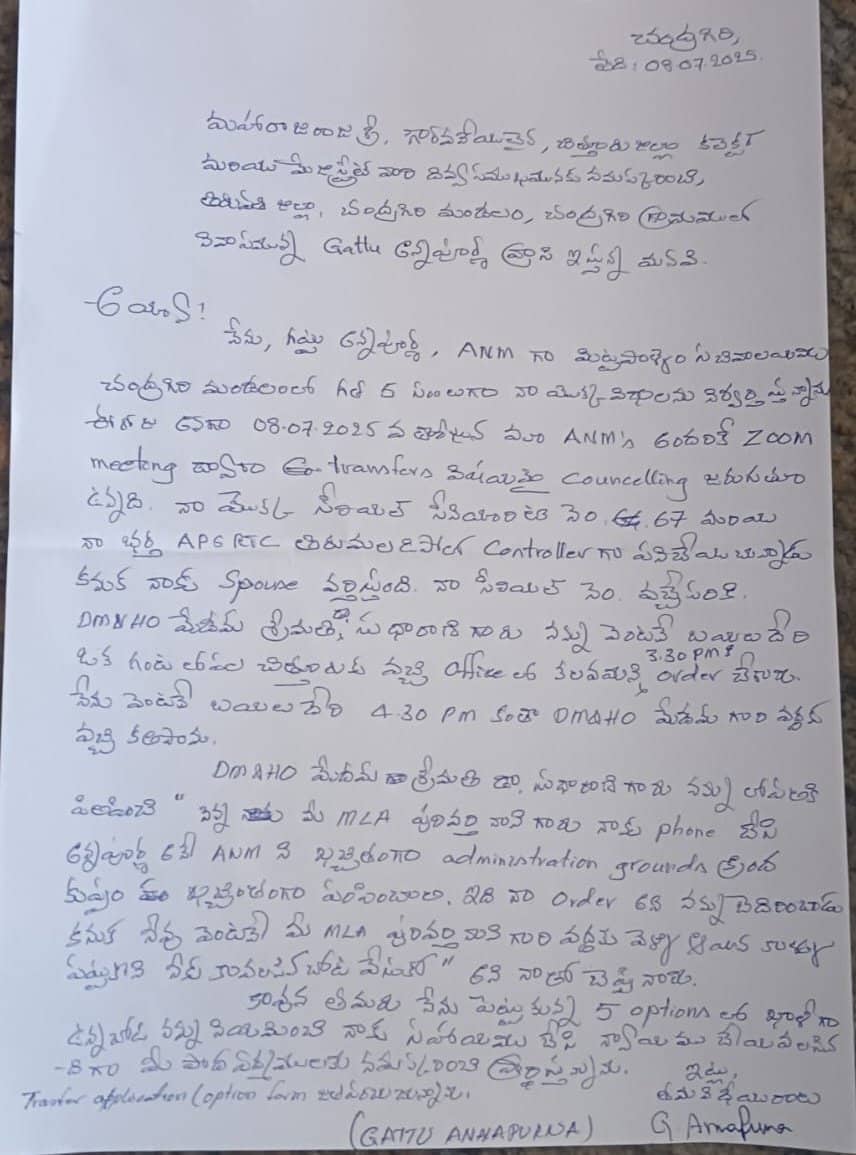 చంద్రగిరి,
తేది: 08.07.2025.
మహారాజరాజశ్రీ, గౌరవనీయులైన, చిత్తూరు జిల్లా కలెక్టర్
మరియు మేజిస్ట్రేట్ వారి దివ్యసముఖమునకు నమస్కరించి,
తిరుపతి జిల్లా, చంద్రగిరి మండలం, చంద్రగిరి గ్రామములో
నివాసమున్న Gattu అన్నపూర్ణ వ్రాసి ఇస్తున్న మనవి.
అయ్యా!
నేను, గట్టు అన్నపూర్ణ, ANM గా మిట్టపాళ్యెం సచివాలయము
చంద్రగిరి మండలంలో గత 5 సం॥లుగా నా యొక్క విధులను నిర్వర్తిస్తున్నాను
ఈ రోజు అనగా 08.07.2025 న ANM's అందరికీ ZOOM
meeting ద్వారా transfers విషయమై councelling జరుగుతూ
ఉన్నది. నా యొక్క సీరియల్ సీనియారిటి నెం. 67 మరియు
నా భర్త APSRTC తిరుమల డిపోలో Controller గా పనిచేయుచున్నాడు
కనుక నాకు Spouse వర్తిస్తుంది. నా సీరియల్ నెం. వచ్చేసరికి.
DM&HO మేడమ్ శ్రీమతి డా, సుధారాణి గారు నన్ను వెంటనే బయలుదేరి
ఒక గంట లోపల చిత్తూరుకు వచ్చి office లో 3.30 PM కి కలవమని order చేశారు.
నేను వెంటనే బయలుదేరి 4.30 PM కంతా DM&HO మేడమ్ గారి వద్దకు
వచ్చి కలిశాను.
DM&HO మేడమ్ శ్రీమతి డా, సుధారాణి గారు నన్ను లోపలికి
పిలిపించి " నిన్న మీ MLA పులివర్తి నాని గారు నాకు phone చేసి
అన్నపూర్ణ అనే ANM ని ఖచ్చితంగా administration grounds క్రింద
కుప్పం ఖచ్చితంగా పంపించాలి. ఇది నా order అని నన్ను బెదిరించాడు
కనుక నీవు వెంటనే మీ MLA పులివర్తి నాని గారి వద్దకు వెళ్ళి ఆయన కాళ్ళు
పట్టుకొని నీకు కావలసినచోట వేసుకో" అని నాతో చెప్పినారు.
కావున తమరు నేను పెట్టుకున్న 5 options లో ఖాళీగా
ఉన్నచోట నన్ను నియమించి నాకు సహాయము చేసి న్యాయము చేయవలసిన
-దిగా మీ పాదపద్మములకు నమస్కరించి ప్రార్థిస్తున్నాను.
ఇట్లు,
Transfer application (option form జతపరచుచున్నాను.
తమ విధేయురాలు
(GATTU ANNAPURNA)
G Annapurna